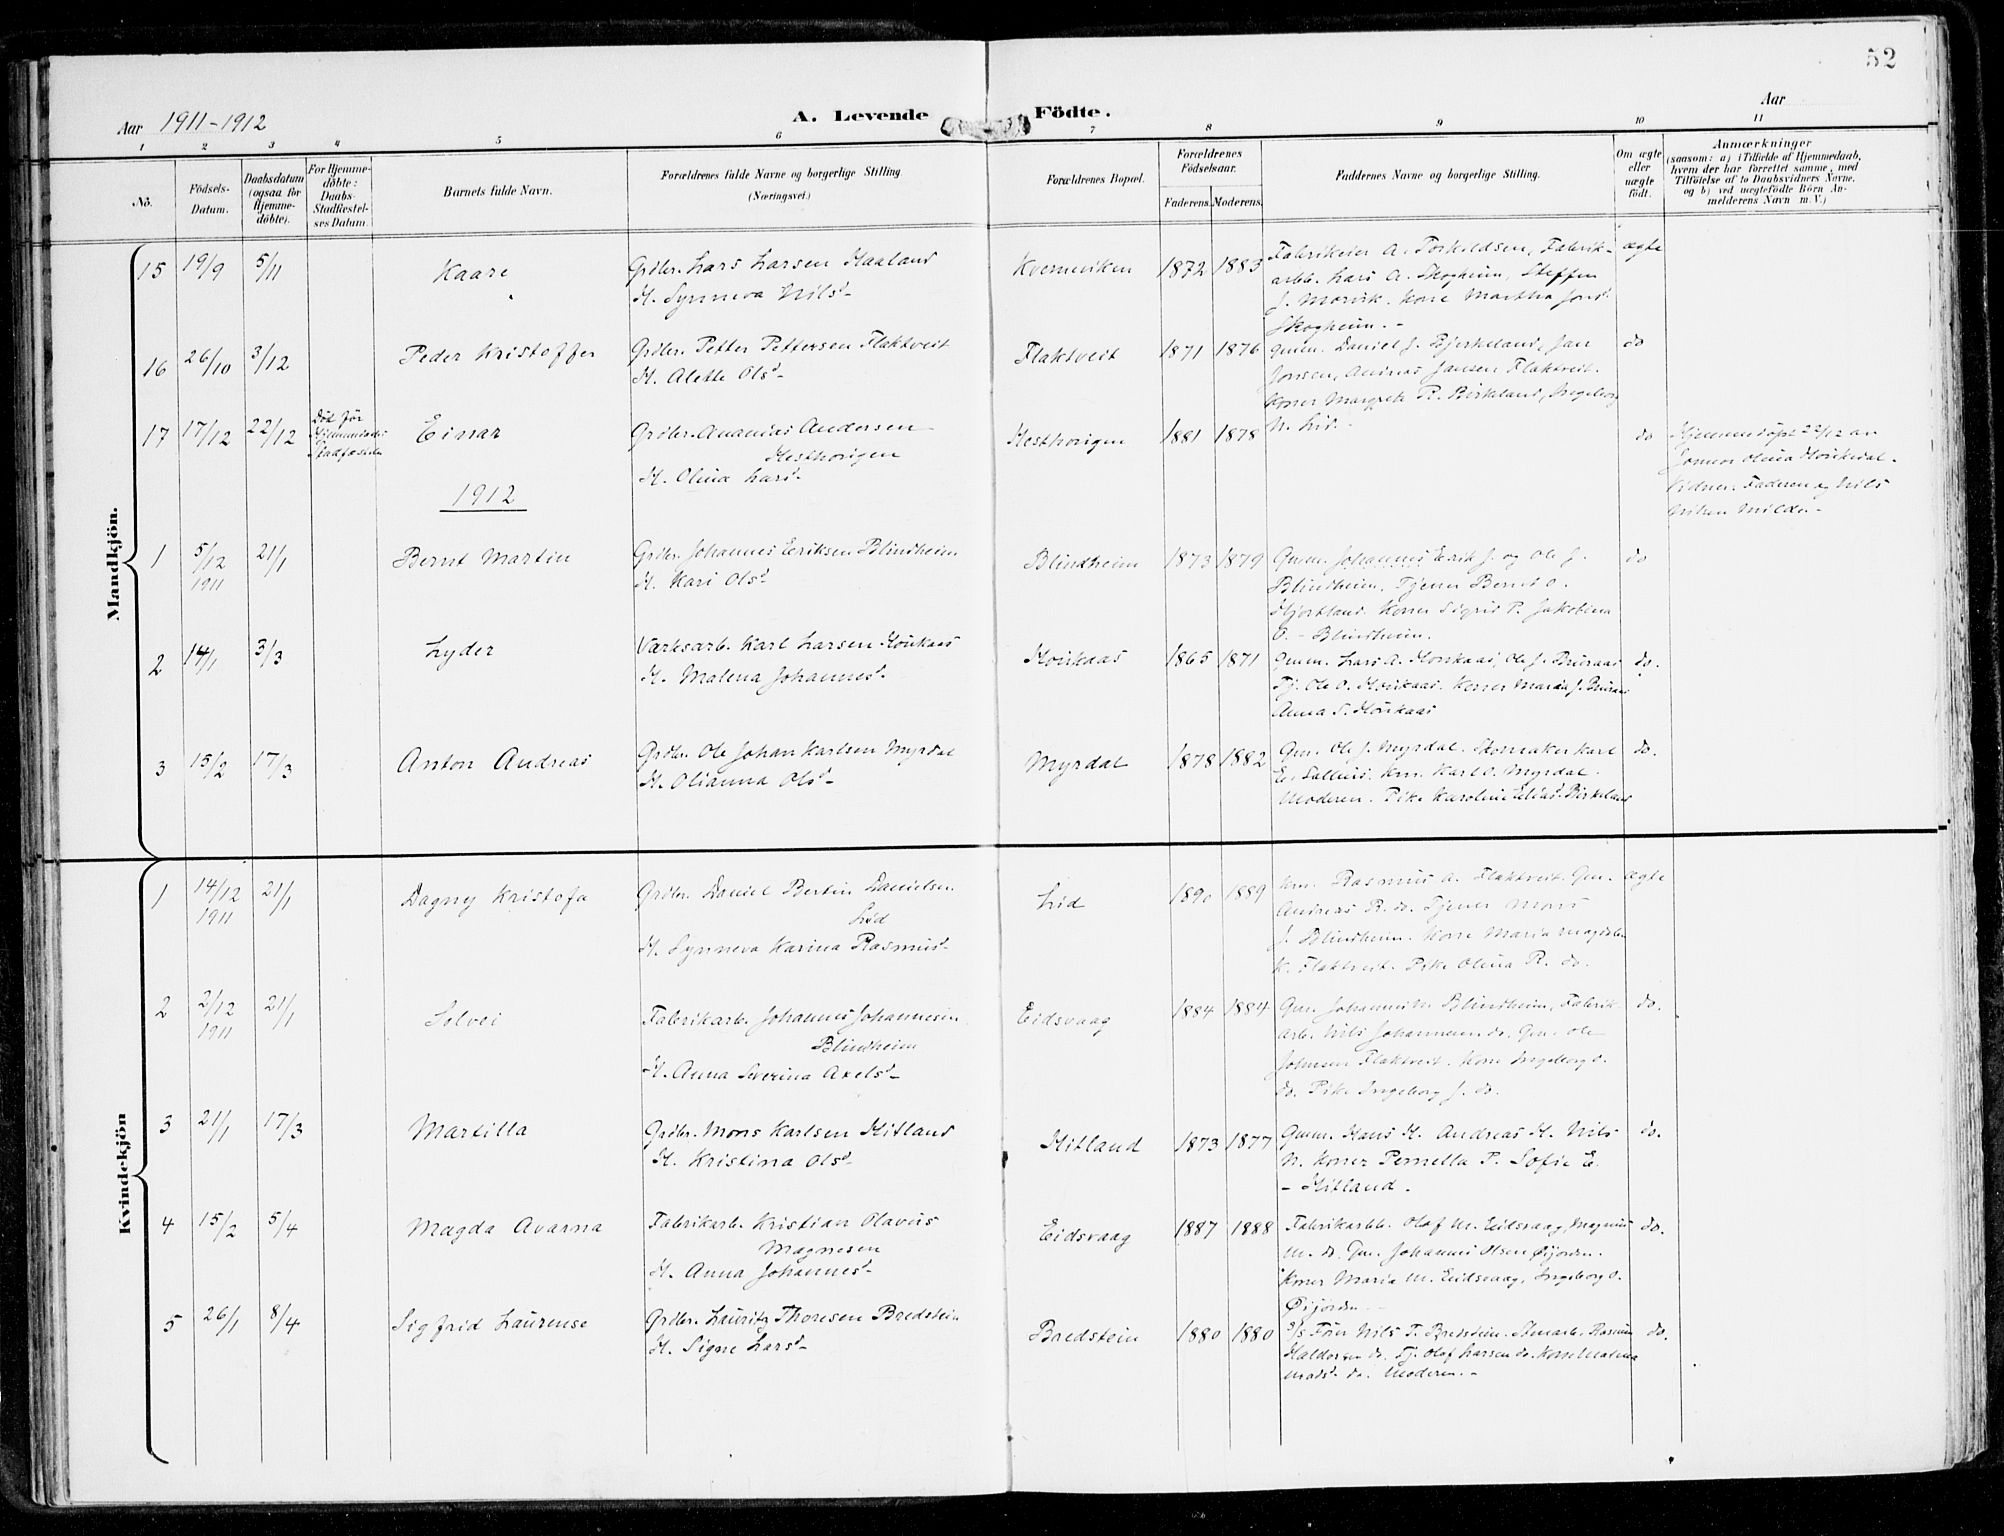 52
Aar 1911-1912
A. Levende Födte.
Aar
1 2 3 4 5 6 7 8 9 10 11
No.
Födsels-Datum.
Daabsdatum (ogsaa for Hjemme-döbte).
For Hjemme-döbte: Daabs-Stadfestel-ses Datum.
Barnets fulde Navn.
Forældrenes fulde Navne og borgerlige Stilling (Næringsvei).
Forældrenes Bopæl.
Forældrenes Födselsaar.
Faderens. Moderens.
Faddernes Navne og borgerlige Stilling.
Om ægte eller uægte födt.
Anmærkninger
(saasom: a) i Tilfælde af Hjemmedaab,
hvem der har forrettet samme, med
Tilföielse af to Daabsvidners Navne,
og b) ved uægtefödte Börn An-
melderens Navn m. V.)
Mandkjön.
15 19/9 5/11 Kaare
Grdbr. Lars Larsen Haaland
H. Synneva Nilsd-
Kverneviken 1872 1883
Fabrikeier A. Torkildsen, Fabrik-
arbb. Lars A. Skogheim, Steffen
J. Morvik. Kone Martha Jonsd.
Skogheim.-
ægte
16 26/10 3/12 Peder Kristoffer
Grdbr. Petter Pettersen Flaktveit
H. Alette Olsd-
Flaktveit 1871 1876
Gmm. Daniel J. Birkeland, Jan
Jonsen, Andreas Jansen Flaktveit.
Koner Margrete R. Birkland, Ingeborg
N. Lid.-
do
17 17/12 22/12 Död för
Einar
Grdbr. Ananias Andersen
Hesthorigen
H. Olina Larsd-
Hesthorigen 1881 1878
do
Hjemmedöpt 22/12 av
Olina
Vidner: Faderen og Nils
Milde.-
1912
1 5/12 1911 21/1 Bernt Martin
Grdbr. Johannes Eriksen Blindheim
H. Kari Olsd
Blindheim 1873 1879
Gmm. Johannes Erik J. og Ole J.
Blindheim. Tjener Bernt O.
Hjortland. Koner Sigrid P. Jakobina
O. - Blindheim.
do
2 14/1 3/3 Lyder
Værksarb. Karl Larsen Houkaas
H. Malena Johannesd-
Houkaas 1865 1871
Gmm. Lars A. Houkaas, Ole J. Bruraas
Tj. Ole O. Houkaas. Koner Maria J. Bruraas
Anna S. Houkaas
do.
3 15/2 17/3 Anton Andreas
Grdbr. Ole Johan Karlsen Myrdal
H. Olianna Olsd-
Myrdal 1878 1882
Gm. Ole J. Myrdal. Skomaker Karl
E. Km. Karl O. Myrdal.
Moderen. Pike Karoline Eliasd. Birkeland
do.
Kvindekjön
1 14/12 1911 21/1 Dagny Kristofa
Grdbr. Daniel Bertin Danielsen
Lid
H. Synneva Karina Rasmusd-
Lid 1890 1889
Km. Rasmus A. Flaktveit. Gm.
Andreas R. do. Tjener Mons
J. Blindheim. Kone Maria
K. Flaktveit. Pike Olina R. do.
ægte
2 2/12 1911 21/1 Solvei
Fabrikarb. Johannes Johannesen
Blindheim
H. Anna Severina Axelsd-
Eidsvaag 1884 1884
Gm. Johannes N. Blindheim, Fabrik-
arb. Nils Johannesen do. Gm. Ole
Johnsen Flaktveit. Kone Ingeborg O.
do. Pike Ingeborg J. do.
do.
3 21/1 17/3 Martilla
Grdbr. Mons Karlsen Hitland
H. Kristina Olsd-
Hitland 1873 1877
Gmm. Hans H. Andreas H. Nils
N. Koner Pernella P. Sofie E.
- Hitland.
do.
4 15/2 5/4 Magda Avarna
Fabrikarb. Kristian Olavus
Magnesen
H. Anna Johannesd-
Eidsvaag 1887 1888
Fabrikarbb. Olaf M. Eidsvaag, Magnus
M. do. Gm. Johannes Olsen Øijorden.
Koner Maria M. Eidsvaag, Ingeborg O.
Øijorden.-
do.
5 26/1 8/4 Sigfrid Laurense
Grdbr. Lauritz Thoresen Bredstein
H. Signe Larsd-
Bredstein 1880 1880
Nils T. Bredstein. Stenarb. Rasmus
Haldorsen do. Tj. Olaf Larsen do. Kone Malena
Madsd. do. Moderen.-
do.